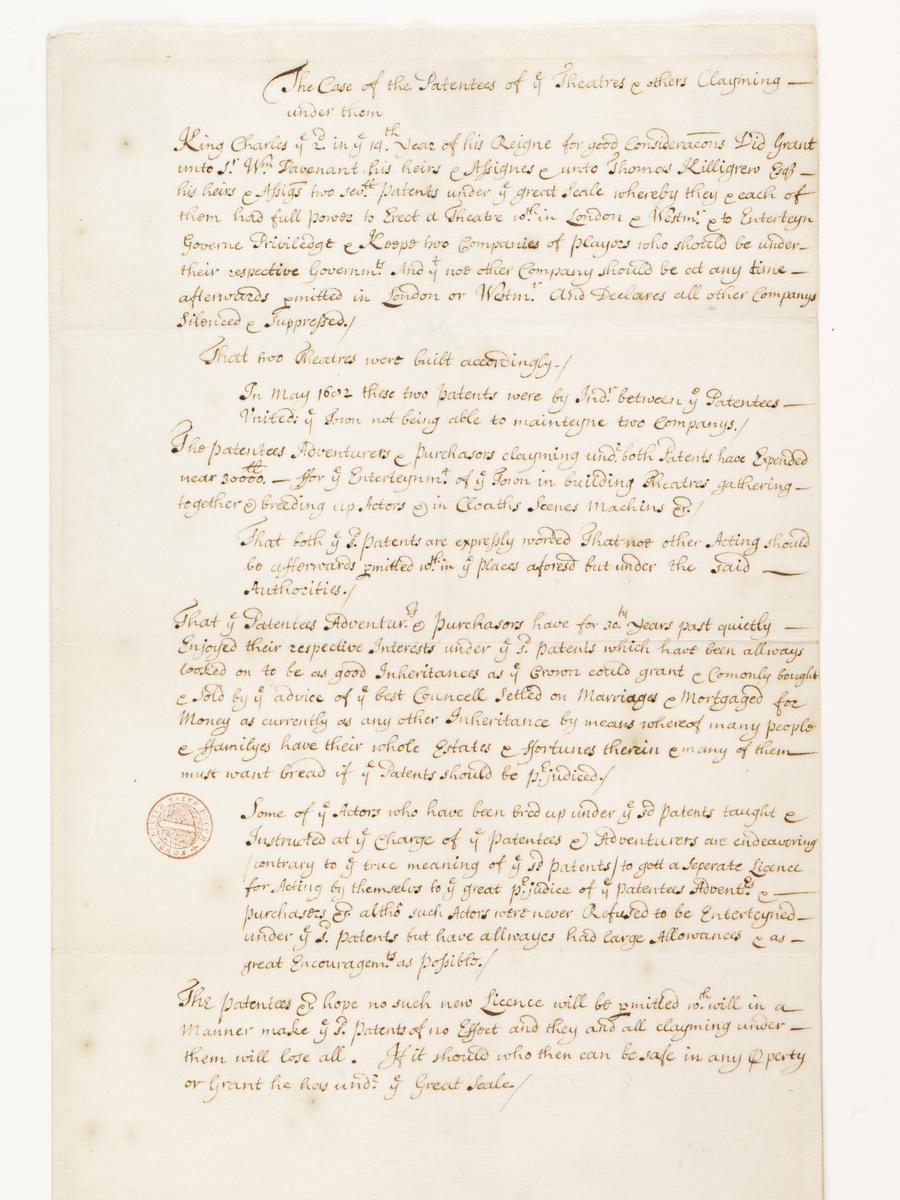 The Case of the Patentees of yͤ Theatres & others Clayming —
under them
King Charles yͤ 2ͩ. in yͤ 14ͭͪ. Year of his Reigne for good Consideracons Did Grant
unto Sʳ. Wᵐ. Davenant his heirs & Assignes & unto Thomas Killigrew Esqʳ —
his heirs & Assigs two sevˡˡ Patents under yͤ great Seale whereby they & each of
them had full power to Erect a Theatre wᵗʰin London & Westmʳ. & to Enterteyn
Governe Priviledge & Keepe two Companies of Players who should be under—
their respective Governmᵗˢ. And yᵗ noe other Company should be at any time —
afterwards ꝑmitted in London or Westmʳ. And Declares all other Companys
Silenced & Suppressed./
That two Theatres were built accordingly./
In May 1682 these two patents were by Indʳ. between yͤ Patentees —
United: yͤ Town not being able to mainteyne two Companys./
The patentees Adventurers & Purchasors clayming undʳ. both Patents have Expended
near 30000ˡˡ. — ffor yͤ Enterteynmᵗ. of yͤ Town in building Theatres gathering—
together & breeding up Actors & in Cloaths Scenes Machins &c./
That both yͤ sᵈ. Patents are expressly worded That noe other Acting should
be afterwards ꝑmitted wᵗʰin yͤ places aforesd but under the said —
Authorities./
That yͤ Patentees Adventurʳˢ & Purchasors have for 30ᵗʸ. Years past quietly —
Enjoyed their respective Interests under yͤ sᵈ. Patents which have been allways
looked on to be as good Inheritances as yͤ Crown could grant & Comonly bought
& sold by yͤ advice of yͤ best Councell Setled on Marriages & Mortgaged for
Money as currently as any other Inheritance by means whereof many people
& ffamilyes have their whole Estates & ffortunes therein & many of them—
must want bread if yͤ Patents should be pʳjudiced./
Some of yͤ Actors who have been bred up under yͤ sd patents taught &
Instructed at yͤ Charge of yͤ patentees & Adventurers are endeavoring
/contrary to yͤ true meaning of yͤ sᵈ patents/ to gett a Seperate Licence
for Acting by themselvs to yͤ great pʳjudice of yͤ patentees Adventʳˢ & —
purchasers &c althô such Actors were never Refused to be Enterteyned—
under yͤ sᵈ. Patents but have allwayes had large Allowances & as —
great Encouragemᵗˢ as possible./
The patentees &c hope no such new Licence will be ꝑmitted wᶜʰ. will in a
Manner make yͤ sᵈ. Patents of no Effect and they and all clayming under —
them will lose all. If it should who then can be safe in any Ꝓperty
or Grant he has undʳ. yͤ Great Seale./